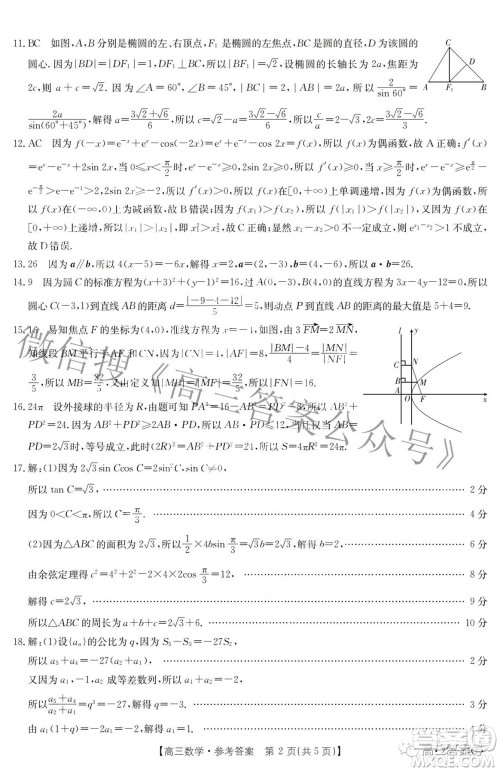 11. BC 如图,A,B分别是椭圆的左、右顶点,F₁是椭圆的左焦点,BC是圆的直径,D为该圆的
圆心.因为|BD|=|DF₁|=1,DF₁⊥BC,所以|BF₁|=√2,设椭圆的长轴长为2a,焦距为
2c,则a+c=√2.因为∠A=60°,∠B=45°,|BC|=2,|AB|=2a,所以2/sin 60°=
2a/sin(60°+45°),解得a=(3√2+√6)/6,所以c=(3√2-√6)/6,所以c/a=2-√3,2c=(3√2-√6)/3.
C
D
A F₁ B
12. AC 因为f(-x)=e⁻ˣ+eˣ-cos(-2x)=eˣ+e⁻ˣ-cos 2x=f(x),所以f(x)为偶函数,故A正确;f′(x)
=eˣ-e⁻ˣ+2sin 2x,当0≤x<π/2时,eˣ-e⁻ˣ≥0,2sin 2x≥0,所以f′(x)≥0,当x≥π/2时,eˣ-e⁻ˣ≥e^(π/2)-
e^(-π/2)>e-e⁻¹>2,2sin 2x≥-2,所以f′(x)>0,所以f(x)在[0,+∞)上单调递增,因为f(x)为偶函数,所
以f(x)在(-∞,0]上为减函数,故B错误;因为f(x₁)>f(x₂),所以f(|x₁|)>f(|x₂|),又因为f(x)在
[0,+∞)上递增,所以|x₁|>|x₂|,即x₁²>x₂²,故C正确;由x₁>x₂不一定可以得出|x₁|>|x₂|,故
D错误.
13. 26 因为a∥b,所以4(x-5)=-6x,解得x=2,a=(2,-3),b=(4,-6),所以a·b=26.
14. 9 因为圆C的标准方程为(x+3)²+(y-1)²=16,过A(0,-3),B(4,0)的直线方程为3x-4y-12=0,
圆心C(-3,1)到直线AB的距离d=|-9-4-12|/5=5,则动点P到直线AB的距离的最大值是5+4=9.
15. 16 易知焦点F的坐标为(4,0),准线l方程为x=-4,如图,由3FM=2MN,
可知线段BM平行于AF和CN,因为|CN|=4,|AF|=8,所以(|BM|-4)/4=|MN|/|NF|=
3/5,所以|MB|=32/5,又由定义|MB|=|MF|,且|MN|/|MF|=3/2,所以|FN|=16.
16. 24π 设外接球的半径为R,由题可知PA²=16-AB²=PD²-8,即AB²+
PD²=24.因为AB²+PD²≥2AB·PD,所以AB·PD≤12,当且仅当AB=
PD=2√3时,等号成立,此时(2R)²=AB²+AD²+PA²=24,所以S=4πR²=24π.
17. 解:(1)因为2√3sin Ccos C=2sin²C,sin C≠0,
所以tan C=√3, 2分
因为0<C<π,所以C=π/3. 4分
(2)因为△ABC的面积为2√3,所以1/2×4bsin π/3=2√3,解得b=2. 6分
由余弦定理得c²=4²+2²-2×4×2cos π/3=12, 8分
解得c=2√3. 9分
所以△ABC的周长为a+b+c=2√3+6. 10分
18. 解:(1)设{aₙ}的公比为q,因为S₅-S₃=-27S₂,
所以a₅+a₄=-27(a₂+a₁), 2分
又因为a₁,-1,a₂成等差数列,
所以(a₅+a₄)/(a₂+a₁)=q³=-27,解得q=-3. 3分
由a₁(1+q)=-2a₁=-2,解得a₁=1. 4分
【高三数学·参考答案 第2页(共5页)】
微信搜《高三答案公众号》